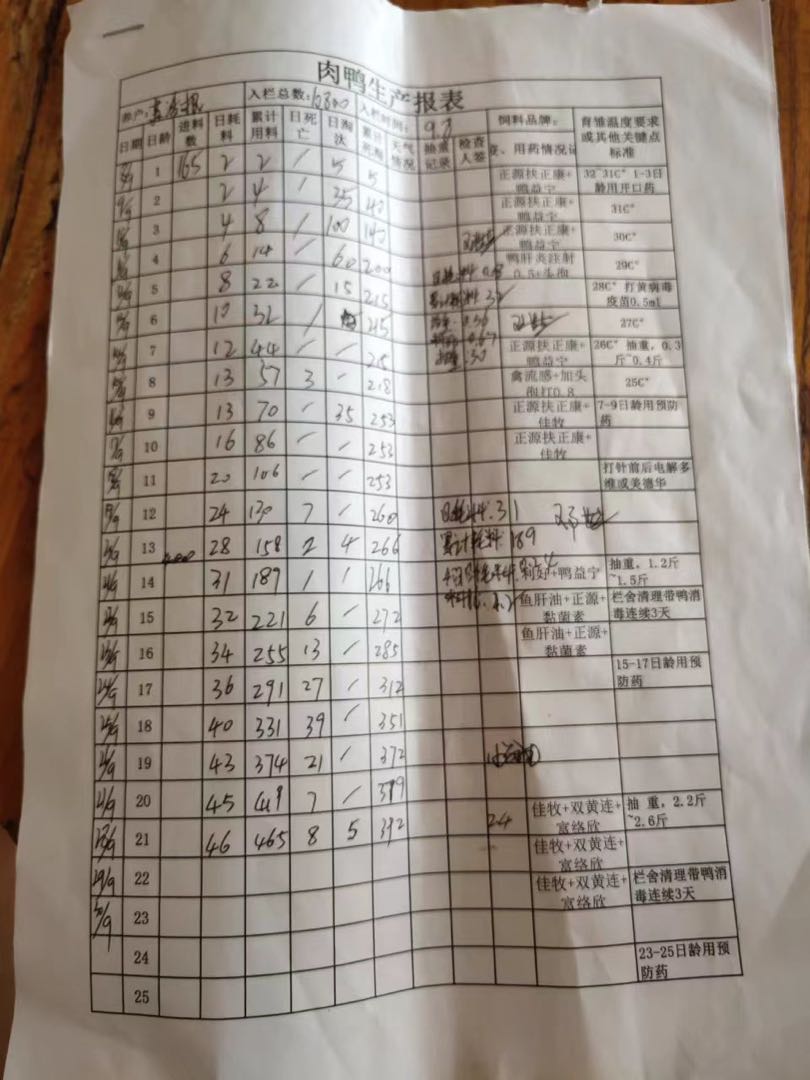 肉鸭生产报表
养户: 入栏总数:10800 入栏时间: 9.8 饲料品牌: 育雏温度要求或其他关键点标准
日期 日龄 进料数 日耗料 累计用料 日死亡 日淘汰 累计死淘 天气情况 抽重记录 检查人签 疫、用药情况记
1 165 2 2 / 5 5 正源扶正康+鸭益宁 32~31C° 1-3日龄用开口药
2 2 4 / 35 40 正源扶正康+鸭益宁 31C°
3 4 8 / 100 140 正源扶正康+鸭益宁 30C°
4 6 14 / 60 200 鸭肝炎注射0.5+头孢 29C°
5 8 22 / 15 215 28C° 打黄病毒疫苗0.5ml
6 10 32 / 215 27C°
7 12 44 / / 215 正源扶正康+鸭益宁 26C° 抽重,0.3斤~0.4斤
8 13 57 3 / 218 禽流感+加头孢打0.8 25C°
9 13 70 / 35 253 正源扶正康+佳牧 7-9日龄用预防药
10 16 86 / / 253 正源扶正康+佳牧
11 20 106 / / 253 打针前后电解多维或美德华
12 24 130 7 / 260 日耗料:31
13 400 28 158 2 4 266 累计耗料 189
14 31 189 / / 266 +鸭益宁 抽重,1.2斤~1.5斤
15 32 221 6 / 272 鱼肝油+正源+黏菌素 栏舍清理带鸭消毒连续3天
16 34 255 13 / 285 鱼肝油+正源+黏菌素
17 36 291 27 / 312 15-17日龄用预防药
18 40 331 39 / 351
19 43 374 21 / 372
20 45 419 7 / 379
21 46 465 8 5 392 24 佳牧+双黄连+富络欣 抽 重,2.2斤~2.6斤
佳牧+双黄连+富络欣
29/9 22 佳牧+双黄连+富络欣 栏舍清理带鸭消毒连续3天
30/9 23
24 23-25日龄用预防药
25